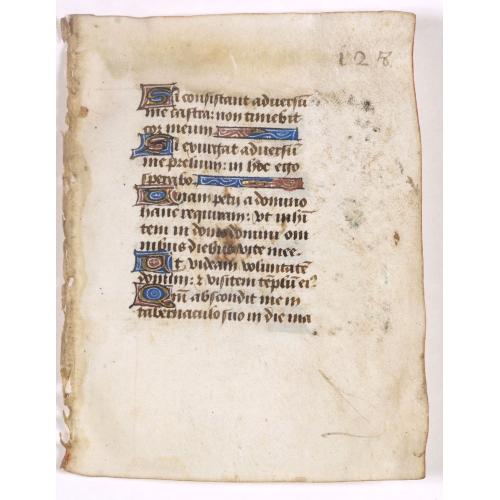 128
Si consistant adversū
me castra: non timebit
cor meum
Si exurgat adversū
me prelium: in hoc ego
sperabo
Unam petii a domino
hanc requiram: ut inhī
tem in domo domini om
nibus diebus vite mee.
Ut videam voluntatē
domini: & visitem tēplum eiꝰ
Qm̄ abscondit me in
tabernaculo suo in die ma